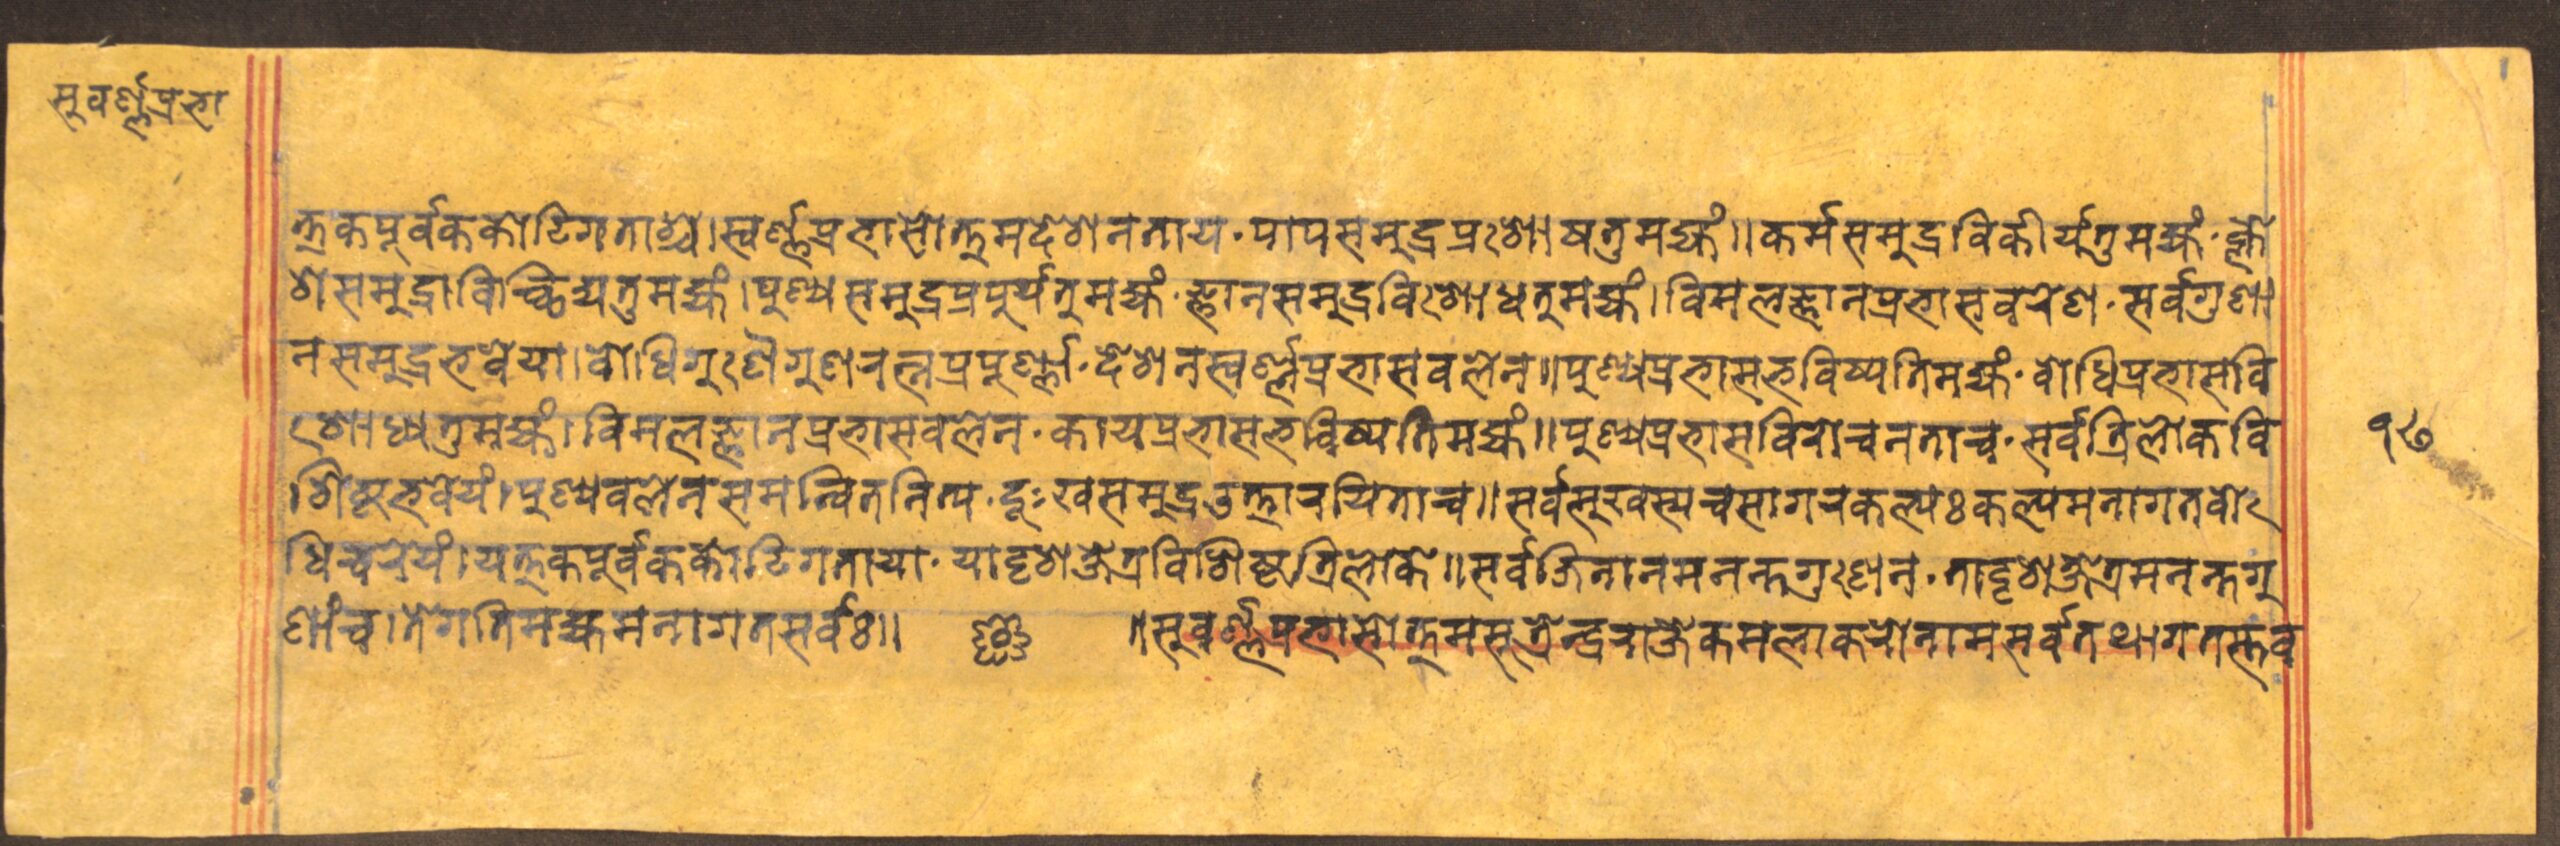 सुवर्ण्णप्रभा
त्त्रकपूर्वककोटिगताश्चे।स्वर्ण्णप्रभासोत्तुमदेशनताय·पापसमुद्रप्रशोषतुमह्यं॥कर्मसमुद्रविकीर्यतुमह्यं·क्ले
शसमुद्राविच्छिद्यतुमह्यं।पुण्यसमुद्रप्रपुर्यतुमह्यं·ज्ञानसमुद्रविशोधतुमह्यं।विमलज्ञानप्रभासवरेण·सर्वगुणा
नसमुद्रभवेया।बोधिगुणैगुणरत्नप्रपूर्ण्णा·देशनस्वर्ण्णप्रभासवलेन॥पुण्यप्रभासभविष्यतिमह्यं·बोधिप्रभासवि
शोध्यतुमह्यं।विमलज्ञानप्रभासवलेन·कायप्रभासभविष्यतिमह्यं॥पुण्यप्रभासविरोचनताच·सर्वत्रिलोकवि
शिष्टभवेयं।पुण्यवलेनसमन्वितनित्य·दूःखसमुद्रउत्तारयिताच॥सर्वसुखस्यचसागरकल्पःकल्पमनागतबो
धिचरेयं।यत्त्कपूर्वककोटिगताया·यादृशक्षेत्रविशिष्टत्रिलोके॥सर्वजिनानमनन्तगुणेन·तादृशक्षेत्रमनन्तगु
णांच।तेगतिमह्यमनागतसर्वः॥ ॥सुवर्ण्णप्रभासोत्तमसूत्रेन्द्रराजेकमलाकरोनामसर्वतथागतस्तव
१७